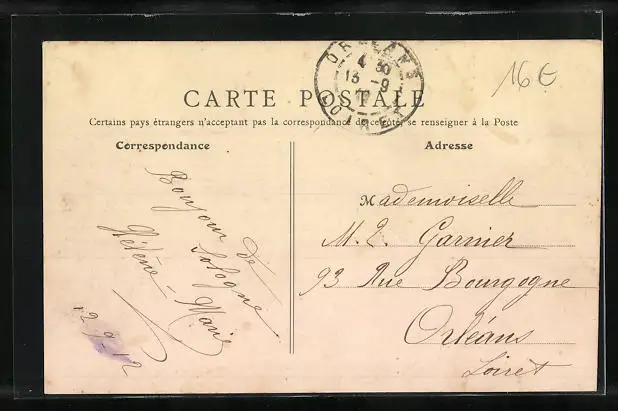 ORLEANS
4 30
13 - 9
LOIRET
16 €
CARTE POSTALE
Certains pays étrangers n'acceptant pas la correspondance de ce côté se renseigner à la Poste
Correspondance
Adresse
Bonjour de
Sologne
Hélène-Marie
12-9-12
Mademoiselle
M. L. Garnier
93 Rue Bourgogne
Orléans
Loiret